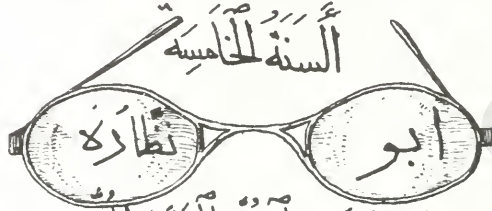 السَّنَةُ الْخَامِسَة
ابو نظارة